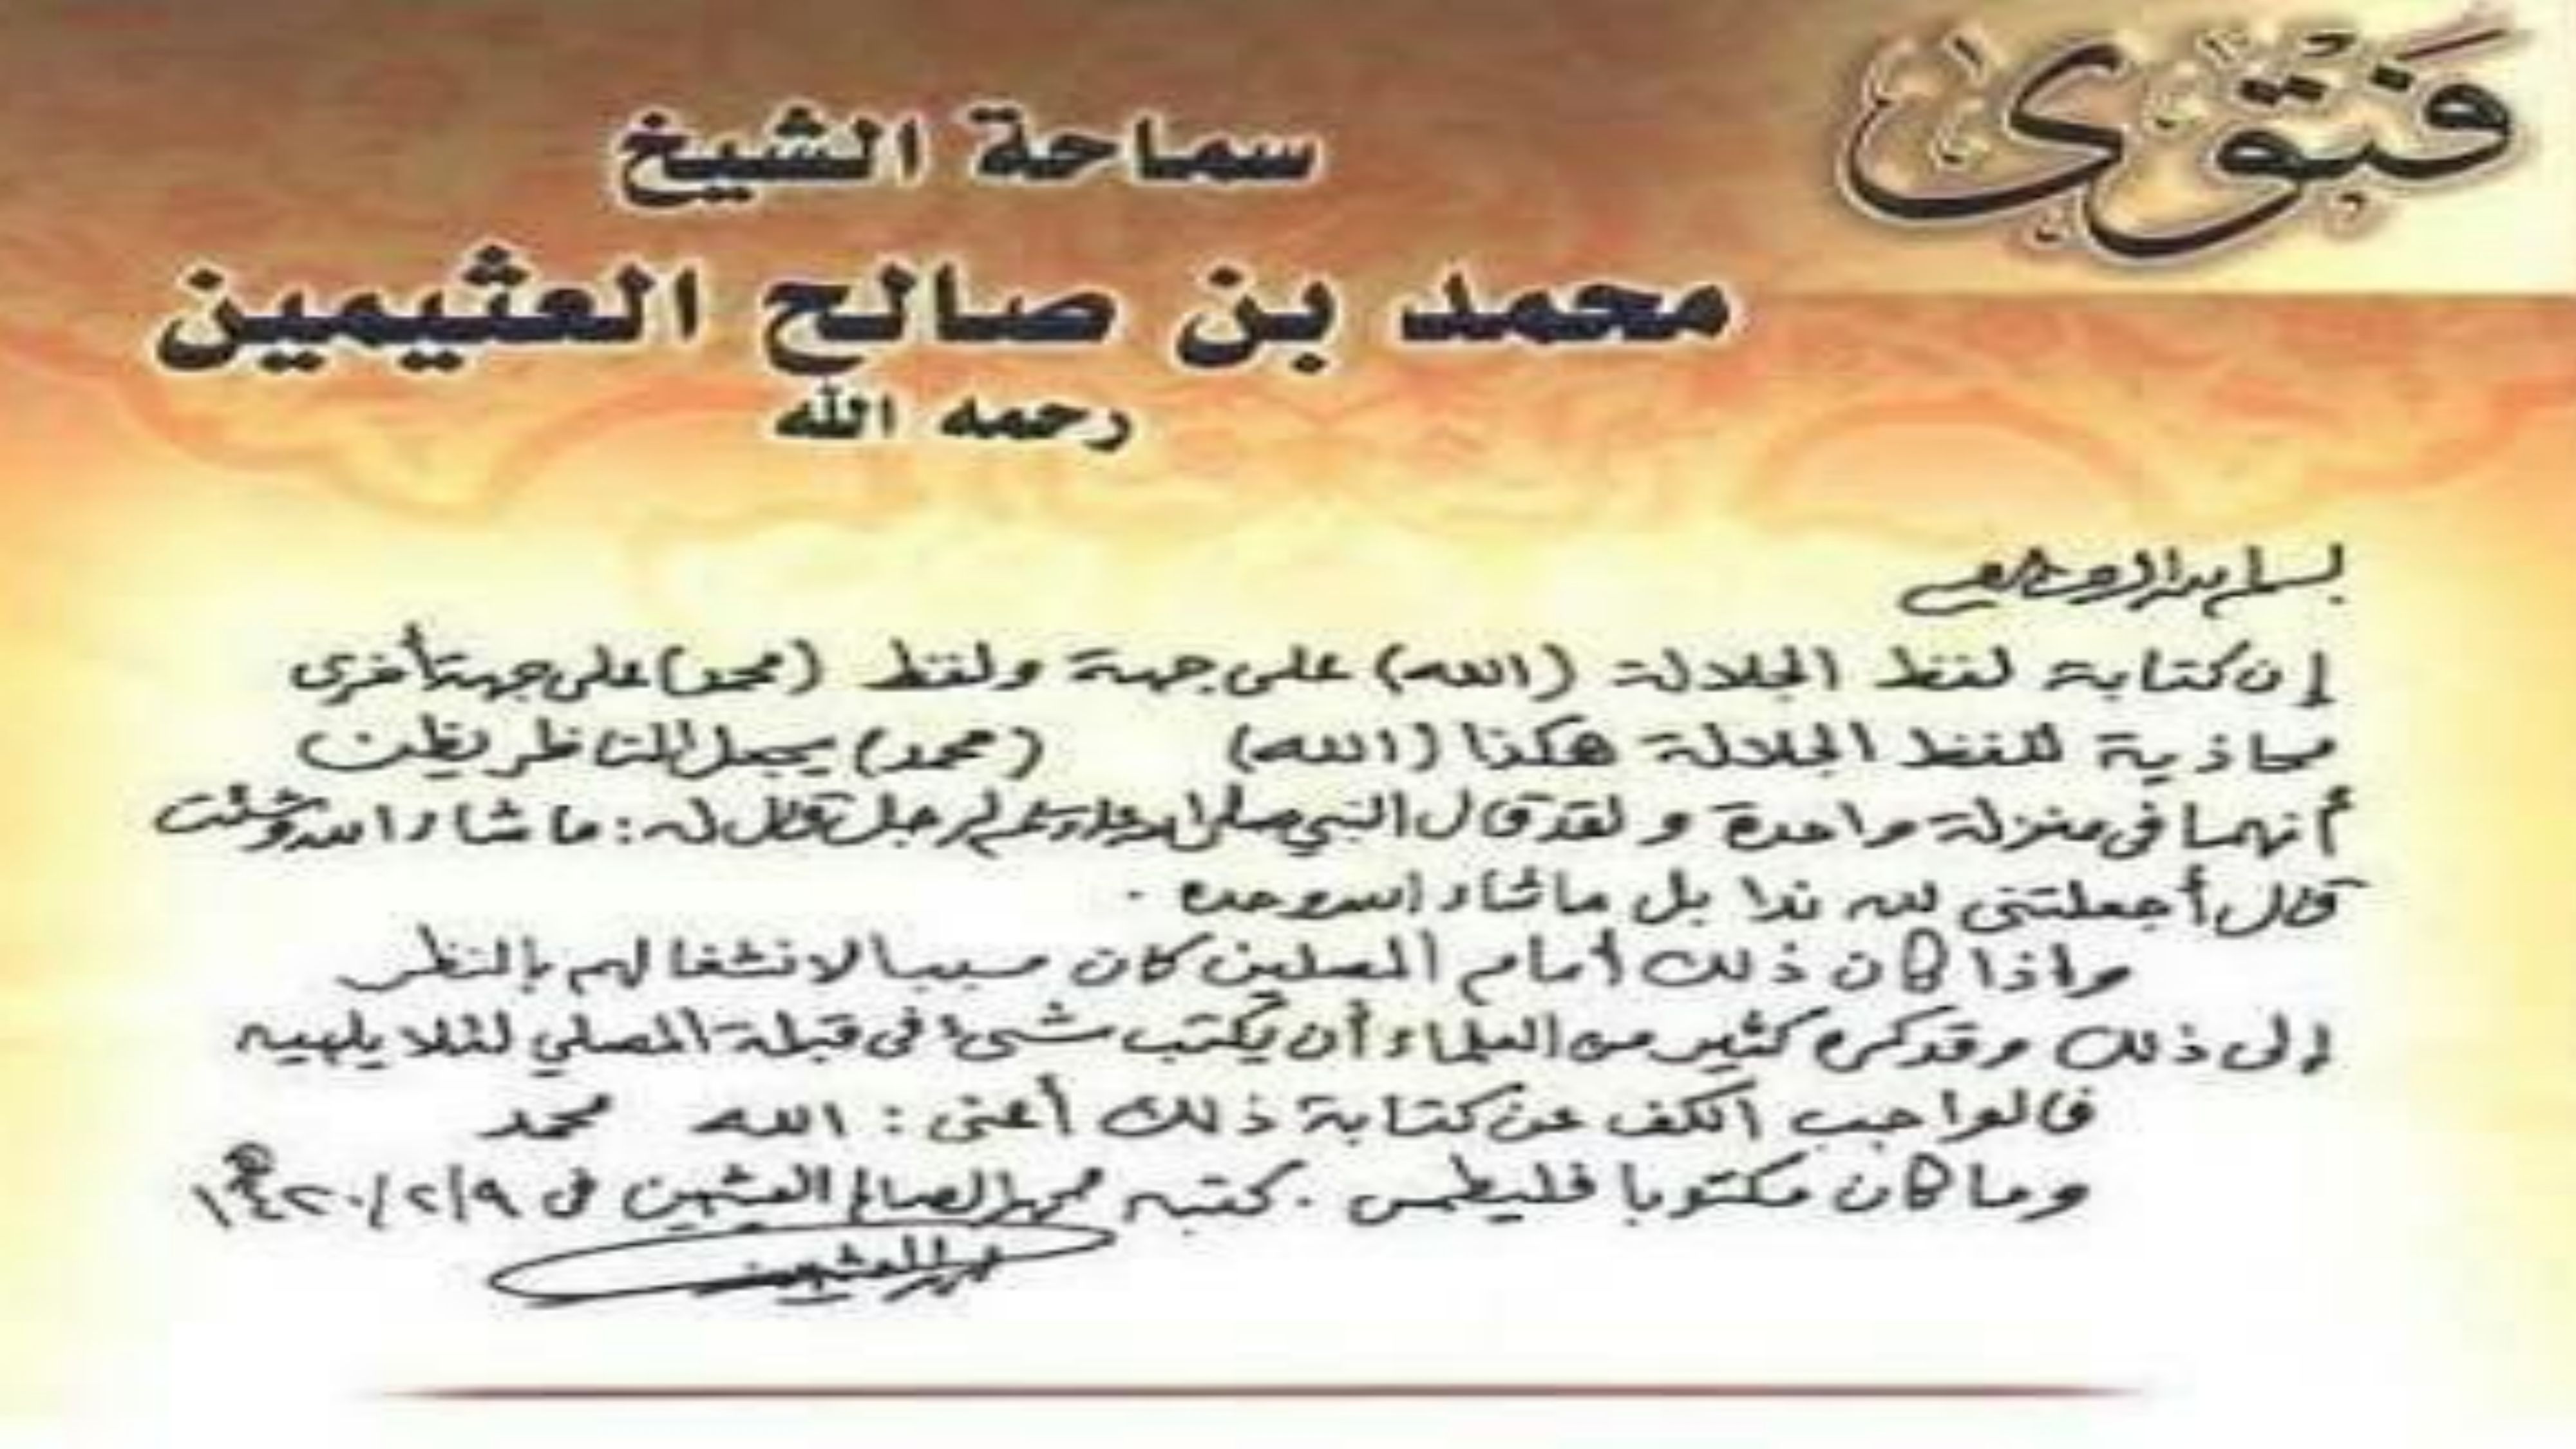 فَتْوَى
سماحة الشيخ
محمد بن صالح العثيمين
رحمه الله
بسم الله الرحمن الرحيم
إن كتابة لفظ الجلالة (الله) على جهة ولفظ (محمد) على جهة أخرى
محاذية للفظ الجلالة هكذا (الله) (محمد) يجعل الناظر يظن
أنهما في منزلة واحدة ولقد قال النبي صلى الله عليه وسلم لرجل قال له: ما شاء الله وشئت
قال أجعلتني لله ندا بل ما شاء الله وحده .
وإذا كان ذلك أمام المصلين كان سببا لانشغالهم بالنظر
إلى ذلك وقد كره كثير من العلماء أن يكتب شيء في قبلة المصلي لئلا يلهيه
فالواجب الكف عن كتابة ذلك أعني : الله محمد
وما كان مكتوبا فليطمس . كتبه محمد الصالح العثيمين في ١٤٢٠/٢/٩هـ
محمد العثيمين